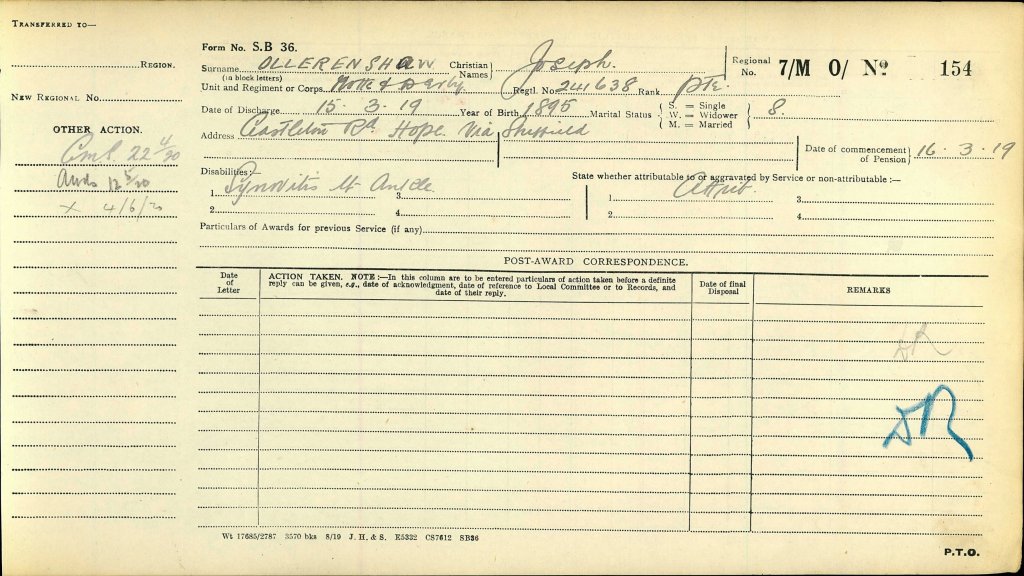 TRANSFERRED TO—
REGION.
NEW REGIONAL No.
OTHER ACTION.
22 4/20
12 5/20
x 4/6/20
Form No. S.B 36.
Surname OLLERENSHAW Christian Names Joseph.
(in block letters)
Regional No. 7/M O/ No 154
Unit and Regiment or Corps. Notts & Derby Regtl. No. 241638 Rank Pte.
Date of Discharge 15. 3. 19 Year of Birth 1895 Marital Status { S. = Single W. = Widower M. = Married } S.
Address Castleton Rd. Hope Via Sheffield
Date of commencement of Pension } 16. 3. 19
Disabilities:—
State whether attributable to or aggravated by Service or non-attributable :—
1 Synovitis Lt Ankle 3
1 Attrib. 3
2 4
2 4
Particulars of Awards for previous Service (if any)
POST-AWARD CORRESPONDENCE.
Date of Letter
ACTION TAKEN. NOTE:—In this column are to be entered particulars of action taken before a definite
reply can be given, e.g., date of acknowledgment, date of reference to Local Committee or to Records, and
date of their reply.
Date of final Disposal
REMARKS
DR
DR
Wt 17685/2787 3570 bks 8/19 J. H. & S. E5332 CS7612 SB36
P.T.O.